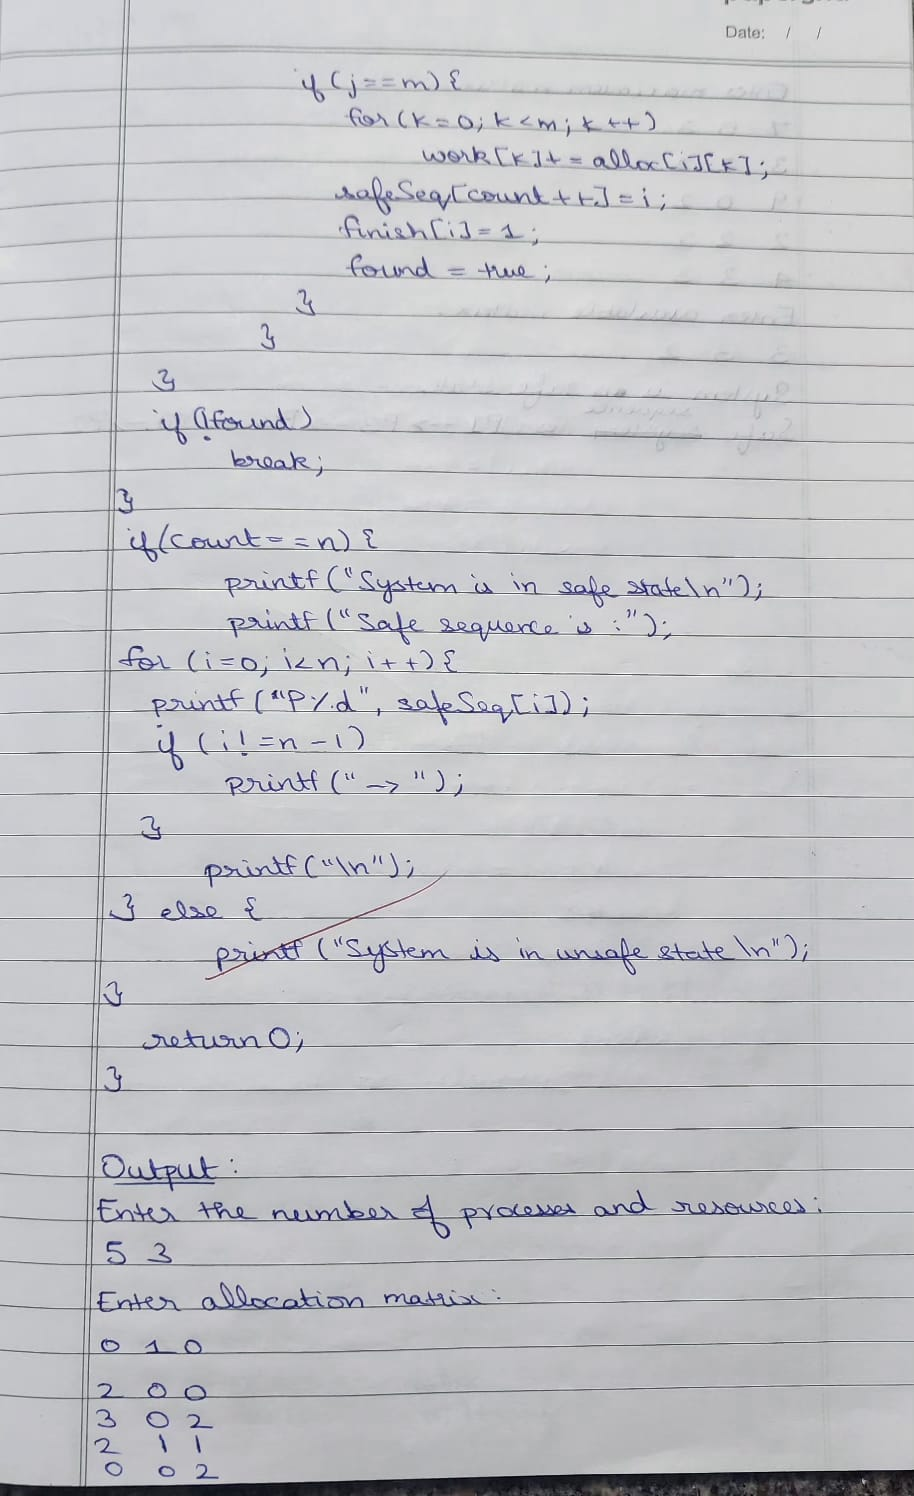 Date: / /
if (j==m) {
for (k=0; k<m; k++)
work[k]+=alloc[i][k];
safeSeq[count++]=i;
finish[i]=1;
found = true;
}
}
}
if (!found)
break;
}
if (count==n) {
printf("System is in safe state\n");
printf("Safe sequence is :");
for (i=0; i<n; i++) {
printf("P%d", safeSeq[i]);
if (i!=n-1)
printf("->");
}
printf("\n");
} else {
printf("System is in unsafe state\n");
}
return 0;
}
Output:
Enter the number of processes and resources:
5 3
Enter allocation matrix:
0 1 0
2 0 0
3 0 2
2 1 1
0 0 2